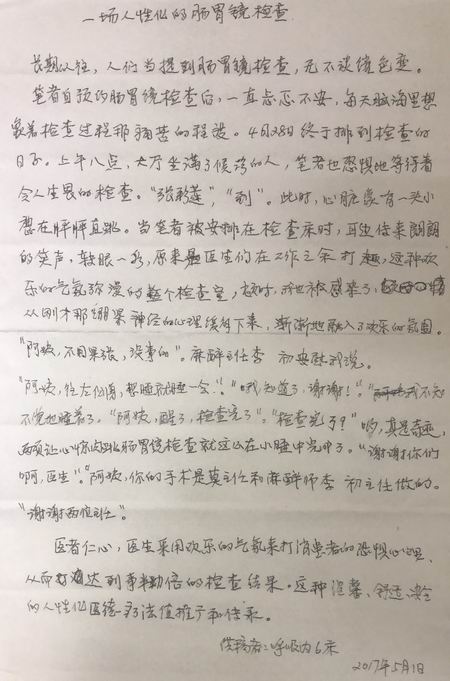 一场人性化的肠胃镜检查
长期以往，人们当提到肠胃镜检查，无不谈镜色变。
笔者自预约肠胃镜检查后，一直忐忑不安，每天脑海里想
象着检查过程那痛苦的程度。4月28日终于排到检查的
日子。上午八点，大厅坐满了候诊的人，笔者也恐惧地等待着
令人生畏的检查。“张彩莲”，“到”。此时，心脏象有一头小
怒在怦怦直跳。当笔者被安排在检查床时，耳边传来朗朗
的笑声，转眼一看，原来是医生们在工作之余打趣，这种欢
乐的气氛弥漫的整个检查室，我也被感染了，
从刚才那绷紧神经的心理缓和下来，渐渐地融入了欢乐的氛围。
“阿姨，不用紧张，没事的”。麻醉主任李 初安慰我说。
“阿姨，往左侧，想睡就睡一会”。“哦，知道了，谢谢！”我不知
不觉也睡着了。“阿姨，醒了，检查完了”。“检查完了？”啊，真是奇迹，
两项让心惊肉跳肠胃镜检查就这么在小睡中完毕了。“谢谢你们
啊，医生”。“阿姨，你的手术是莫主任和麻醉师李 初主任做的。
“谢谢两位主任”。
医者仁心，医生采用欢乐的气氛来打消患者的恐惧心理，
从而达到事半功倍的检查结果。这种温馨、舒适、安全
的人性化医德方法值推广和传承。
供稿者：呼吸内6床
2017年5月1日